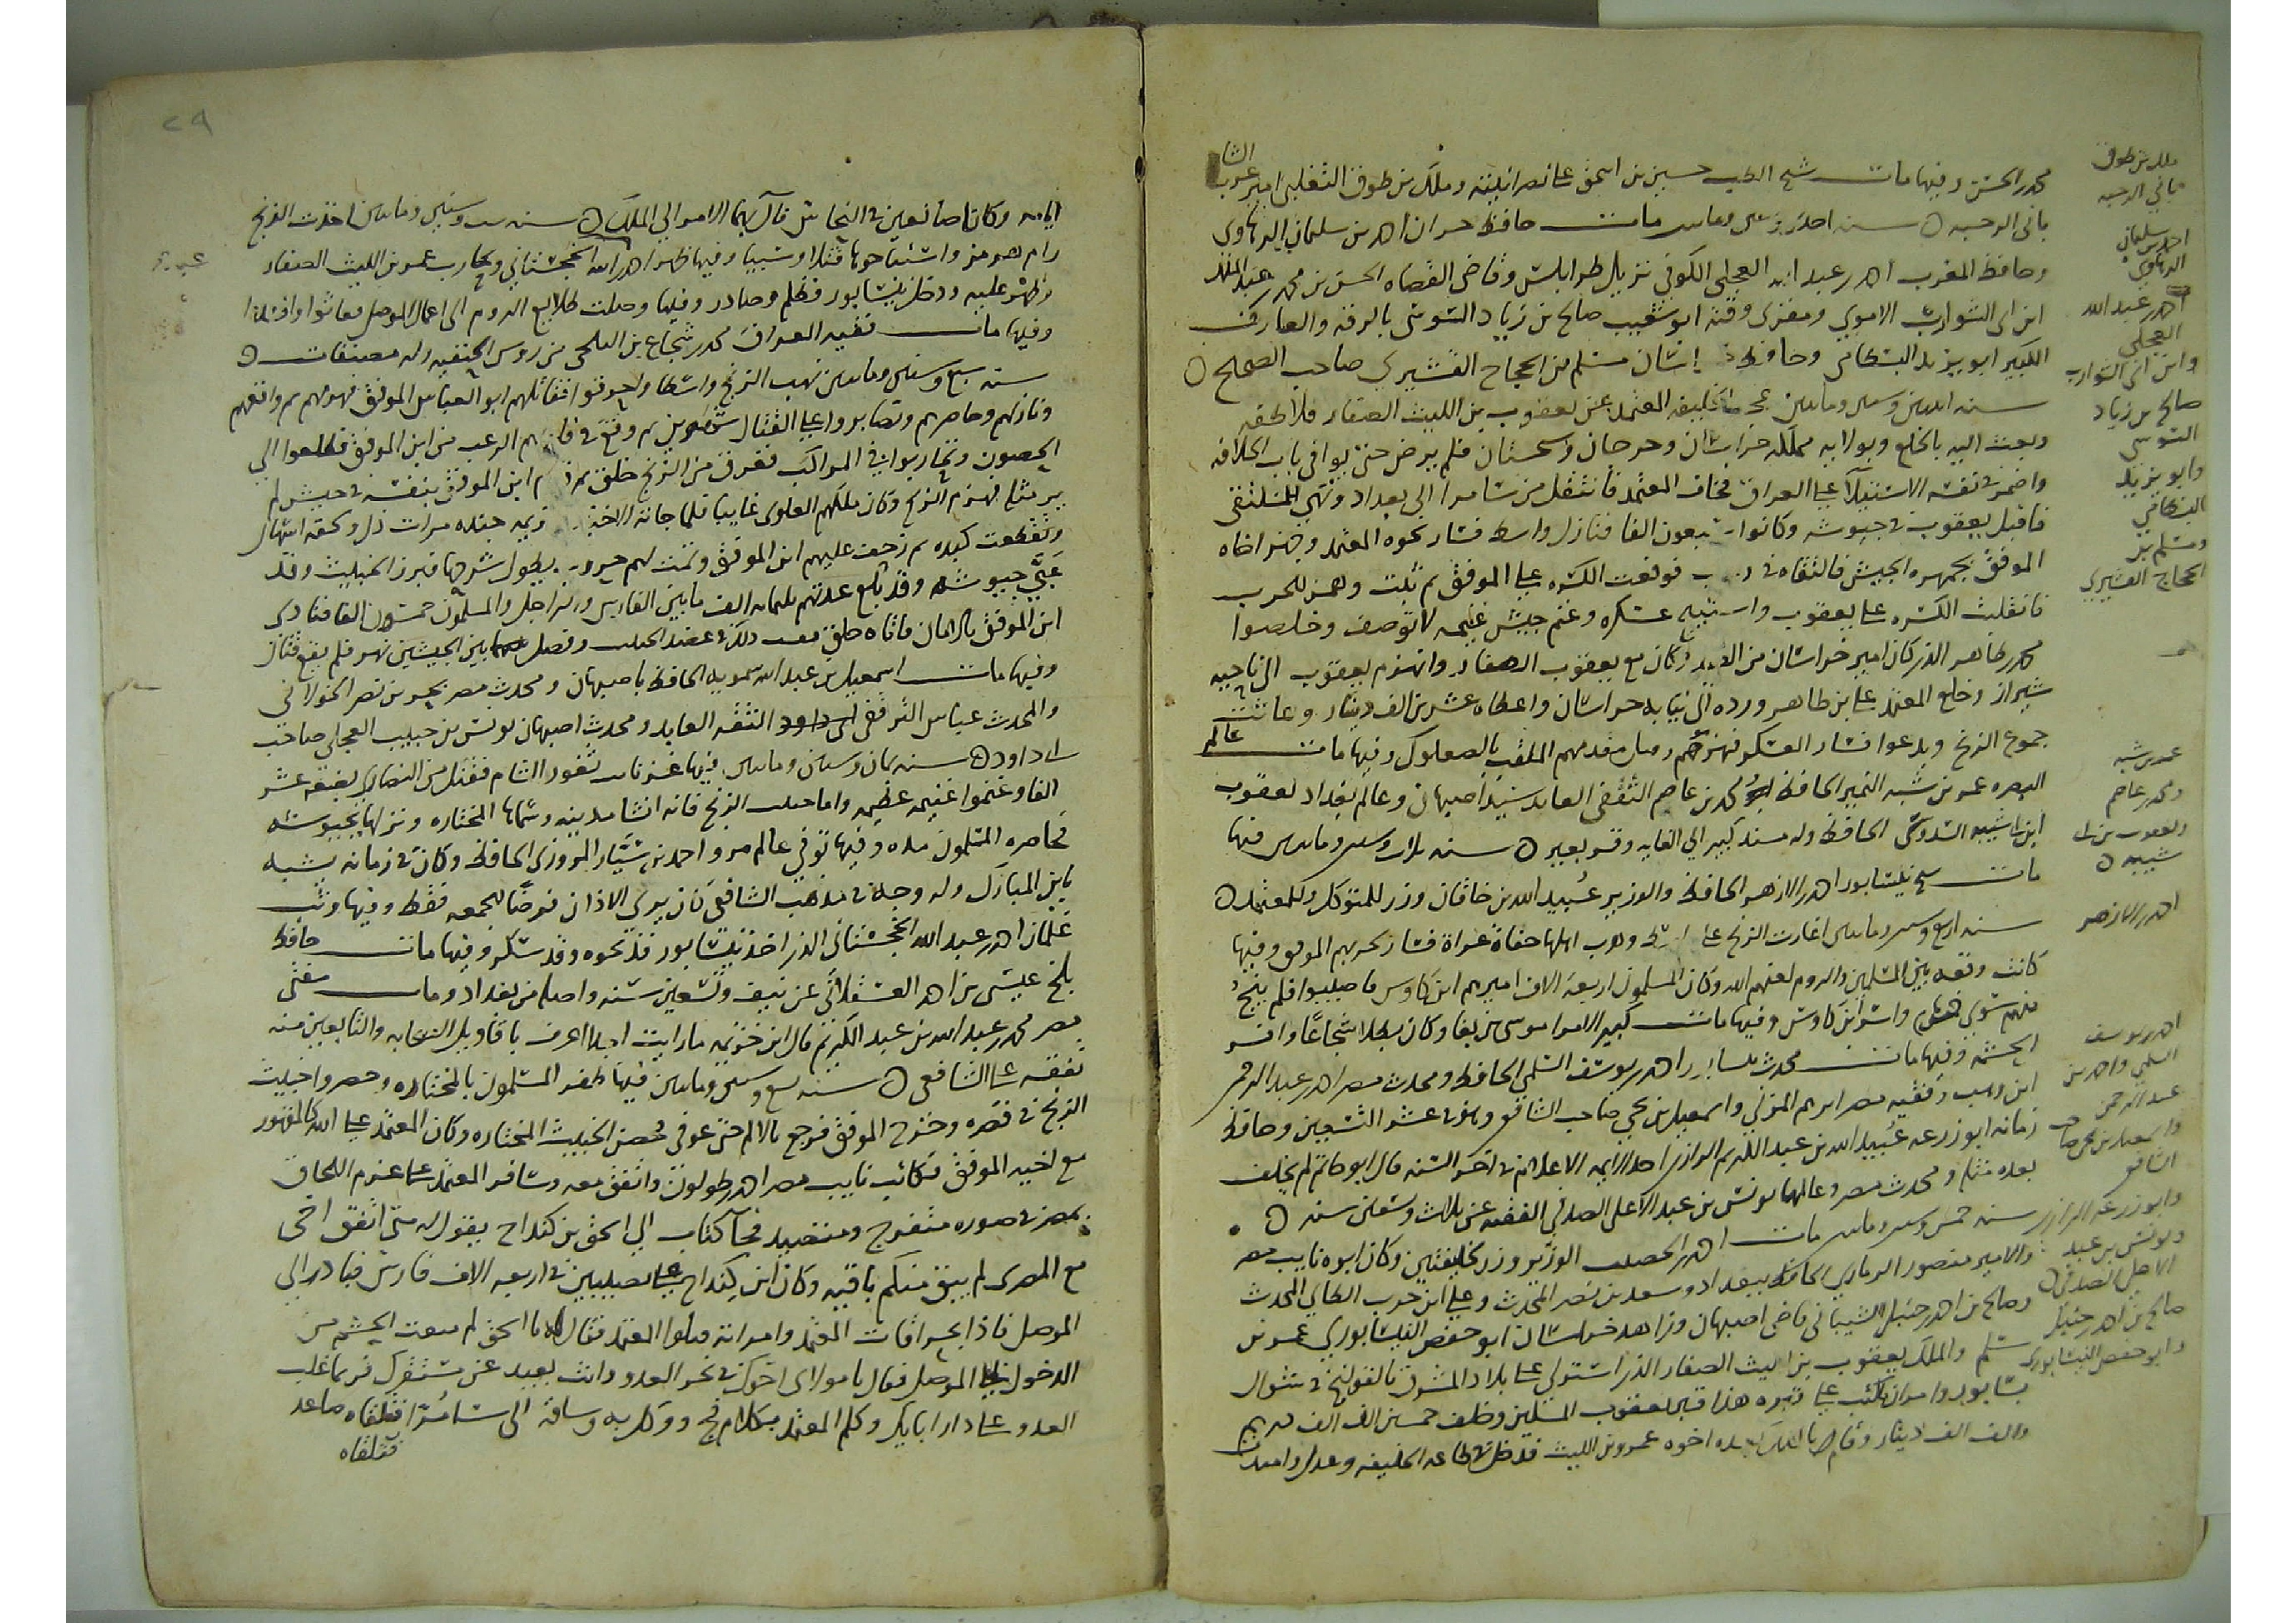 محمد بن الحسن وفيها مات شيخ الطب حسين بن اسحق على نصرانيته وملك بن طوق التغلبي امير عرب الشا
باني الرحبه سنه احدى وستين ومايتين مات حافظ حران احمد بن سليمان الرهاوى
وحافظ المغرب احمد بن عبد الله العجلى الكوفى نزيل طرابلس وقاضى القضاه الحسن بن محمد بن عبد الملك
ابن ابى الشوارب الاموي ومقرى وقته ابو شعيب صالح بن زياد السوسى بالرقه والعارف
الكبير ابو يزيد البسطامي وحافظ خراسان مسلم بن الحجاج القشيرى صاحب الصحيح
سنه اثنين وستين ومايتين عجز الخليفه المعتمد عن يعقوب بن الليث الصفار فلاطفه
وبعث اليه بالخلع وبولايه مملكه خراسان وجرجان وسجستان فلم يرض حتى يوافى باب الخلافه
واضمر فى نفسه الاستيلا على العراق فخاف المعتمد فانتقل من سامرا الى بغداد وتهى للملتقى
فاقبل يعقوب فى جيوشه وكانوا سبعون الفا فنازل واسط فسار نحوه المعتمد وجهز اخاه
الموفق بجمهره الجيش فالتقاه فى رجب فوقعت الكسره على الموفق ثم ثبت وهمز للحرب
فانقلبت الكسره على يعقوب واستبيح عسكره وغنم جيش غنيمه لا توصف وخلصوا
محمد بن طاهر الذى كان امير خراسان من القيد وكان مع يعقوب الصفار وانهزم يعقوب الى ناحيه
شيراز وخلع المعتمد على بن طاهر ورده الى نيابه خراسان واعطاه عشرين الف دينار وعاثت
جموع الزنج وبدعوا فسار العسكر فهزموهم وقتل مقدمهم الملقب بالصعلوك وفيها مات عالم
البصره عمر بن شبه النميرى الحافظ ومحمد بن عاصم الثقفى العابد سيد اصبهان وعالم بغداد يعقوب
ابن شيبه السدوسى الحافظ وله مسند كبير الى الغايه وقر بعير سنه ثلاث وستين ومايتين فيها
مات شيخ نيسابور احمد بن الازهر الحافظ والوزير عبيد الله بن خاقان وزر للمتوكل وللمعتمد
سنه اربع وستين ومايتين اغارت الزنج على واسط وهرب اهلها حفاة عراة فسار لحربهم الموفق وفيها
كانت وقعه بين المسلمين والروم لعنهم الله وكان المسلمون اربعه الاف اميرهم ابن كاوس فاصيبوا فلم ينج
منهم سوى خمسمايه واسر ابن كاوس وفيها مات كبير الامرا موسى بن بغا وكان بطلا شجاعا وافر
الحشمه وفيها مات محدث نيسابور احمد بن يوسف السلمى الحافظ ومحدث مصر احمد بن عبد الرحمن
ابن وهب وفقيه مصر اسمعيل بن يحيى المزنى صاحب الشافعى وهو فى عشر التسعين وحافظ
زمانه ابو زرعه عبيد الله بن عبد الكريم الرازى احد الايمه الاعلام فى اخر السنه قال ابو حاتم لم يخلف
بعده مثله ومحدث مصر وعالمها يونس بن عبد الاعلى الصدفى الفقيه عن ثلاث وتسعين سنه
سنه خمس وستين ومايتين مات احمد بن الخصيب الوزير وزر لخليفتين وكان ابوه نايب مصر
والامير منصور الرمادي الحافظ ببغداد وسعدان بن نصر المحدث وعلى ابن حرب الطائى المحدث
وصالح بن احمد بن حنبل الشيبانى قاضى اصبهان وزاهد خراسان ابو حفص النيسابوري عمرو بن
سلم والملك يعقوب بن الليث الصفار الذى استولى على بلاد المشرق بالقولنج فى شوال
بسابور وامر ان يكتب على قبره هذا قبر يعقوب المسكين وخلف خمسين الف الف درهم
والف الف دينار وقام بالملك بعده اخوه عمرو بن الليث فدخل فى طاعه الخليفه وعدل وامتدت
ملك بن طوق
باني الرحبه
احمد بن سليمان
الرهاوى
احمد بن عبد الله
العجلى
وابن ابى الشوارب
صالح بن زياد
السوسى
وابو يزيد
البسطامي
ومسلم بن
الحجاج القشيرى
عمر بن شبه
ومحمد بن عاصم
ويعقوب بن
شيبه
احمد بن الازهر
احمد بن يوسف
السلمى واحمد بن
عبد الرحمن
واسمعيل بن يحيى صاحب
الشافعى
وابو زرعه الرازى
ويونس بن عبد
الاعلى الصدفى
صالح بن احمد بن حنبل
وابو حفص النيسابورى
٢٩
ايامه وكانا صانعين فى النحاس فآل بهما الامر الى الملك سنه ست وستين ومايتين اخذت الزنج
رام هرمز واستباحوها قتلا وسبيا وفيها ظهر احمد بن عبد الله الخجستانى وحارب عمرو بن الليث الصفار
وظهر عليه ودخل نيسابور فظلم وصادر وفيها وصلت طلايع الروم الى اعمال الموصل فعاثوا وافسدوا
وفيها مات فقيه العراق محمد بن شجاع بن الثلجى من روس الحنفيه وله مصنفات
سنه سبع وستين ومايتين نهب الزنج واسطا واحرقوا فقاتلهم ابو العباس الموفق فهزمهم ثم واقعهم
ونازلهم وحاصرهم وتصابروا على القتال شهرين ثم وقع فى قلوبهم الرعب من ابن الموفق فطلعوا الى
الحصون وتحاربوا فى المراكب فغرق من الزنج خلق ثم قدم ابن الموفق بنفسه فى جيش لم
ير مثله فهزم الزنج وكان ملكهم العلوى غايبا فلما جاته الاخبار بهزيمه جنده مرات ذل ولحقه اسهال
وتقطعت كبده ثم زحف عليهم ابن الموفق وتمت لهم حروب يطول شرحها فبرز الخبيث وقد
عبى جيوشه وقد بلغ عدتهم ثلثمايه الف ما بين الفارس والراجل والمسلمون خمسون الفا فنادى
ابن الموفق بالامان فاتاه خلق ففت ذلك فى عضد الخبيث وفصل بين الجيشين نهر فلم يقع قتال
وفيها مات اسمعيل بن عبد الله سمويه الحافظ باصبهان ومحدث مصر بحر بن نصر الخولانى
والمحدث عباس الترقفى الثقه العابد ومحدث اصبهان يونس بن حبيب العجلى صاحب
ابى داود سنه ثمان وستين ومايتين فيها غزا نايب ثغور الشام فقتل من النصارى بضعه عشر
الفا وغنموا غنيمه عظيمه واما خبيث الزنج فانه انشا مدينه وسماها المختاره ونزلها بجيوشه
فحاصره المسلمون مده وفيها توفى عالم مرو احمد بن سيار المروزى الحافظ وكان فى زمانه يشبه
بابن المبارك وله وجه فى مذهب الشافعى كان يرى الاذان فرضا للجمعه فقط وفيها وثب
غلمان احمد بن عبد الله الخجستانى الذى اخذ نيسابور فذبحوه وقد سكر وفيها مات حافظ
بلخ عيسى بن احمد العسقلانى عن نيف وتسعين سنه واصله من بغداد ومات مفتى
مصر محمد بن عبد الله بن عبد الحكم قال ابن خزيمه ما رايت احدا اعرف باقاويل الصحابه والتابعين منه
تفقه على الشافعى سنه تسع وستين ومايتين فيها ظفر المسلمون بالمختاره وحصر الخبيث
الزنج فى قصره وجرح الموفق فرجع بالالم حتى عوفى فحصن الخبيث المختاره وكان المعتمد على الله كالمقهور
مع اخيه الموفق فكاتب نايب مصر احمد بن طولون واتفق معه وسافر المعتمد على عزم اللحاق
بمصر فى صوره متفرج ومتصيد فجا كتاب الى اسحق بن كنداج يقول له متى اتفق اخى
مع المصرى لم يبق منكم باقيه وكان ابن كنداج على نصيبين فى اربعه الاف فارس فبادر الى
الموصل فاذا بحراقات المعتمد وامرائه فتلقوا المعتمد فقال له يا اسحق لم منعت الحشم من
الدخول الى الموصل فقال يا مولاى اخوك فى نحر العدو وانت بعيد عن مستقرك فربما غلب
العدو على دار ابايك وكلم المعتمد بكلام فج ووكل به وساقه الى سامرا فتلقاه صاعد
فتلقاه